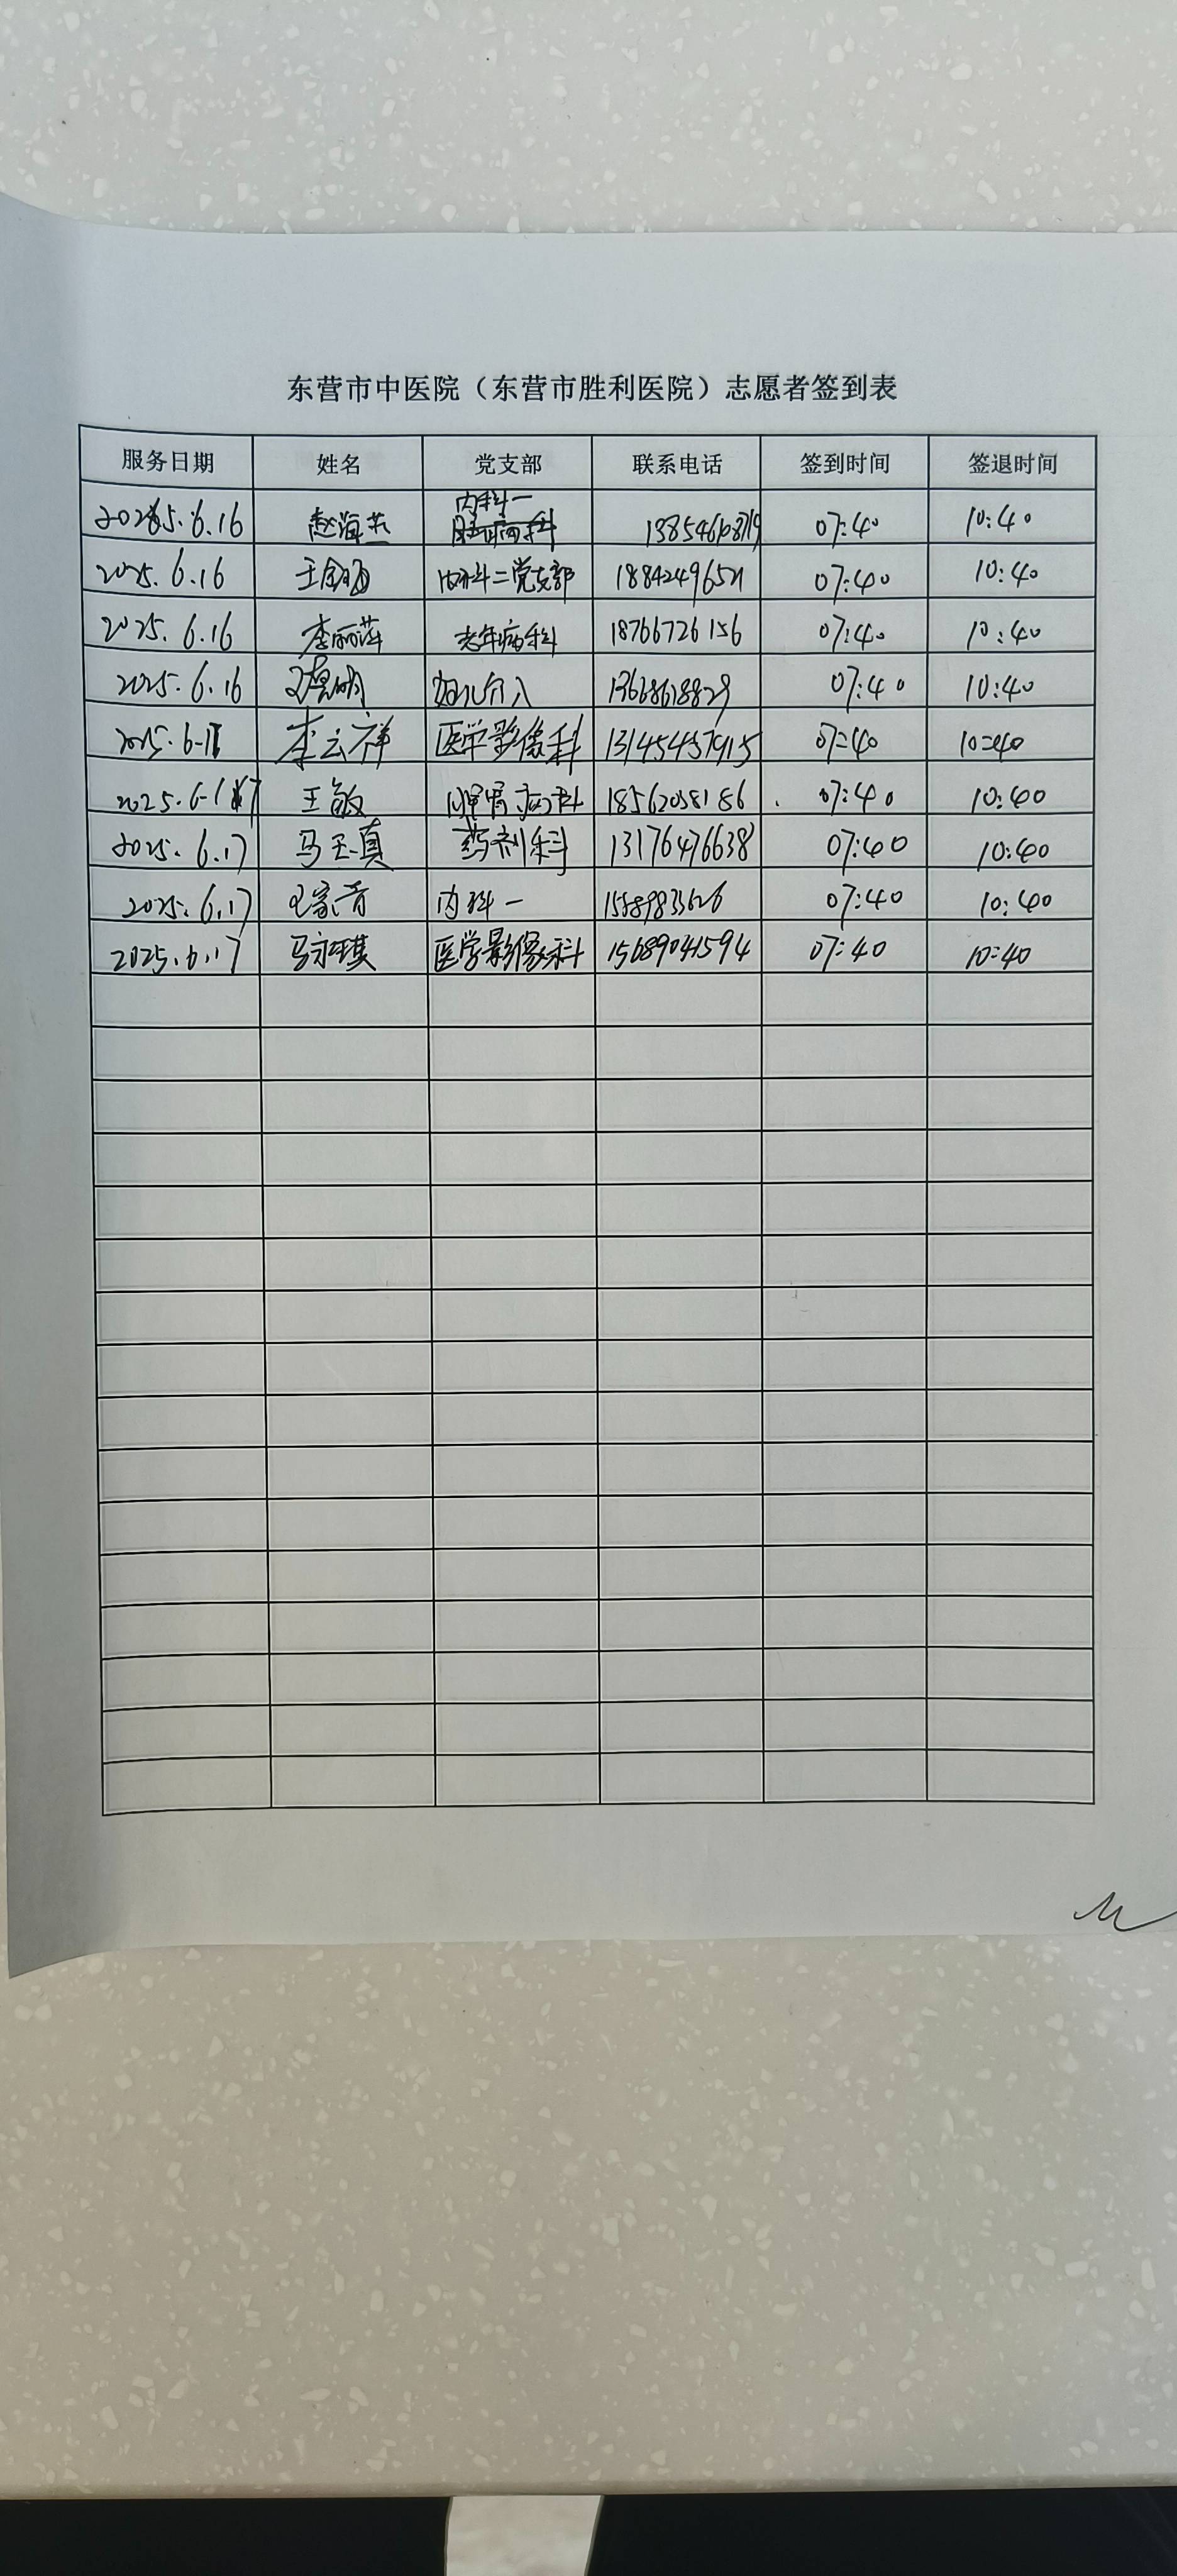 东营市中医院（东营市胜利医院）志愿者签到表
服务日期 姓名 党支部 联系电话 签到时间 签退时间
2025.6.16 内科一 07:40 10:40
2025.6.16 内科二党支部 07:40 10:40
2025.6.16 李丽萍 老年病科 18766726156 07:40 10:40
2025.6.16 07:40 10:40
李云祥 医学影像科 13145457915 07:40 10:40
王敏 脾胃病科 18562038186 07:40 10:40
2025.6.17 马玉真 药剂科 13176476638 07:40 10:40
2025.6.17 内科一 07:40 10:40
2025.6.17 马永琪 医学影像科 15689041594 07:40 10:40